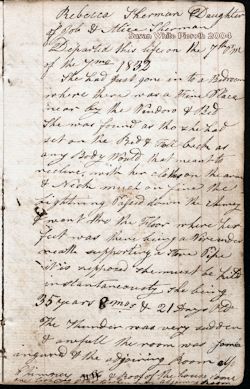 Rebecca Sherman Daughter
of Job & Alice Sherman
Susan White Pieroth 2004
Departed this life on the 7th of
of the 7mo 1833
She had just gone in to a Bedroom
where there was a Fire Place
near by the Window & Bed
She was found as tho she had
set on the Bed & Fell back as
any Body Would that meant to
recline, with her clothes on the arm
& Neck much on fire the
lightning Passed down the chimney
went thro the Floor where her
feet was there being a
neath supporting a Stove Pipe
it is supposed She must be kild
instantaneously She being
35 years 8 mos & 21 Days old
The Thunder was very sudden
& awfull the room was some
injured & the adjoining Room all
chimney & roof of the house some